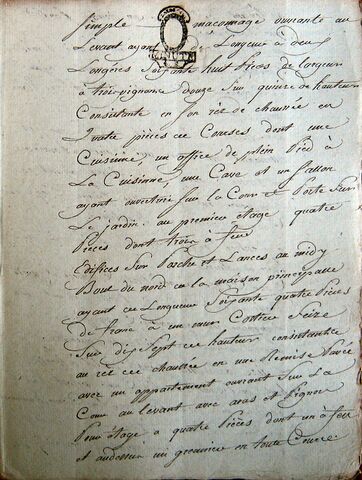 simple maconnage ouvrante au
MINUTE
Levant ayant Longueur à deux
Longéres Soixante huit pieds de largeur
a trois pignons douze Sur quinze de hauteur
Consistante en Son réz de chaussée en
Quatre pièces ou Courses dont une
Cuisinne, un office de plein Pied à
La Cuisinne, une Cave et un Sallon
ayant ouverture Sur la Cour et Porte Sur
Le jardin. au premier étage quatre
Pieces dont trois a feu
Edifices Sur et au midy
Bout du nord de la maison principalle
ayant de Longueur Soixante quatre Pieds
de franc à un mur Contre Seize
Sur dix Sept de hauteur consistante
au réz de chaussée en une Remise
avec un appartement ouvrant Sur La
Cour au levant avec et Pignon
Pour étage a quatre Pieces dont un à feu
et audessus un grennier en toute